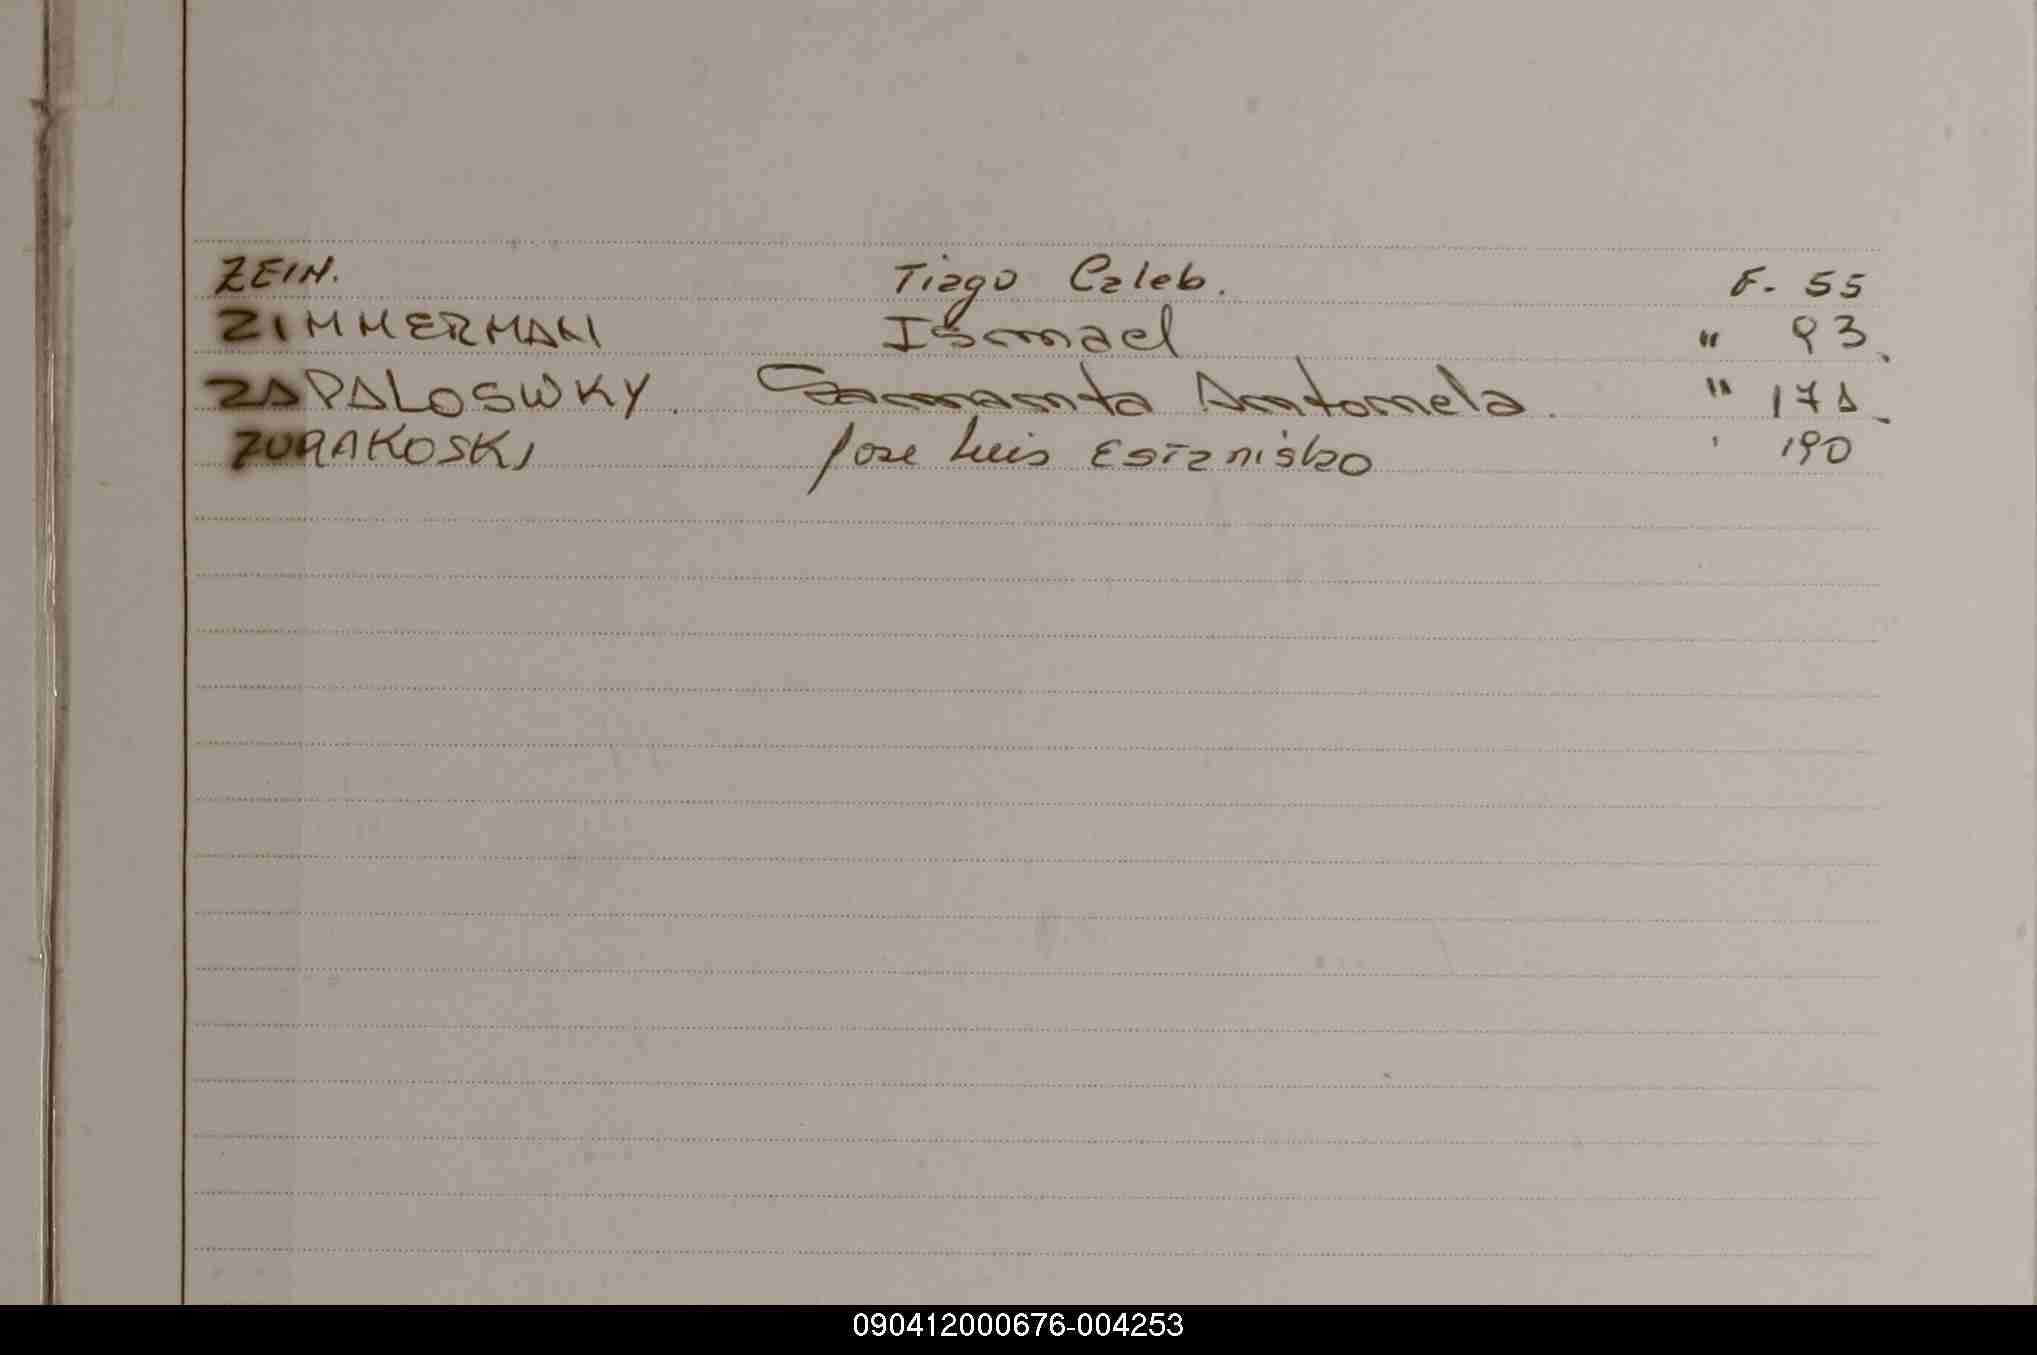 ZEIN. Tiago Caleb. F. 55
ZIMMERMAN Ismael " 93.
ZAPALOSWKY. Samanta Antonela. "
ZURAKOSKI Jose Luis Estanislao ' 190
090412000676-004253